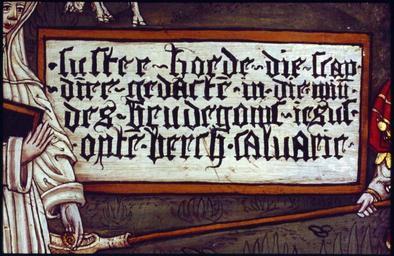 ·suster·hoede·die·scap·
dīer·gedactē·in·die·mīn
des·breudegoms·iesus·
optē·berch·caluarie·